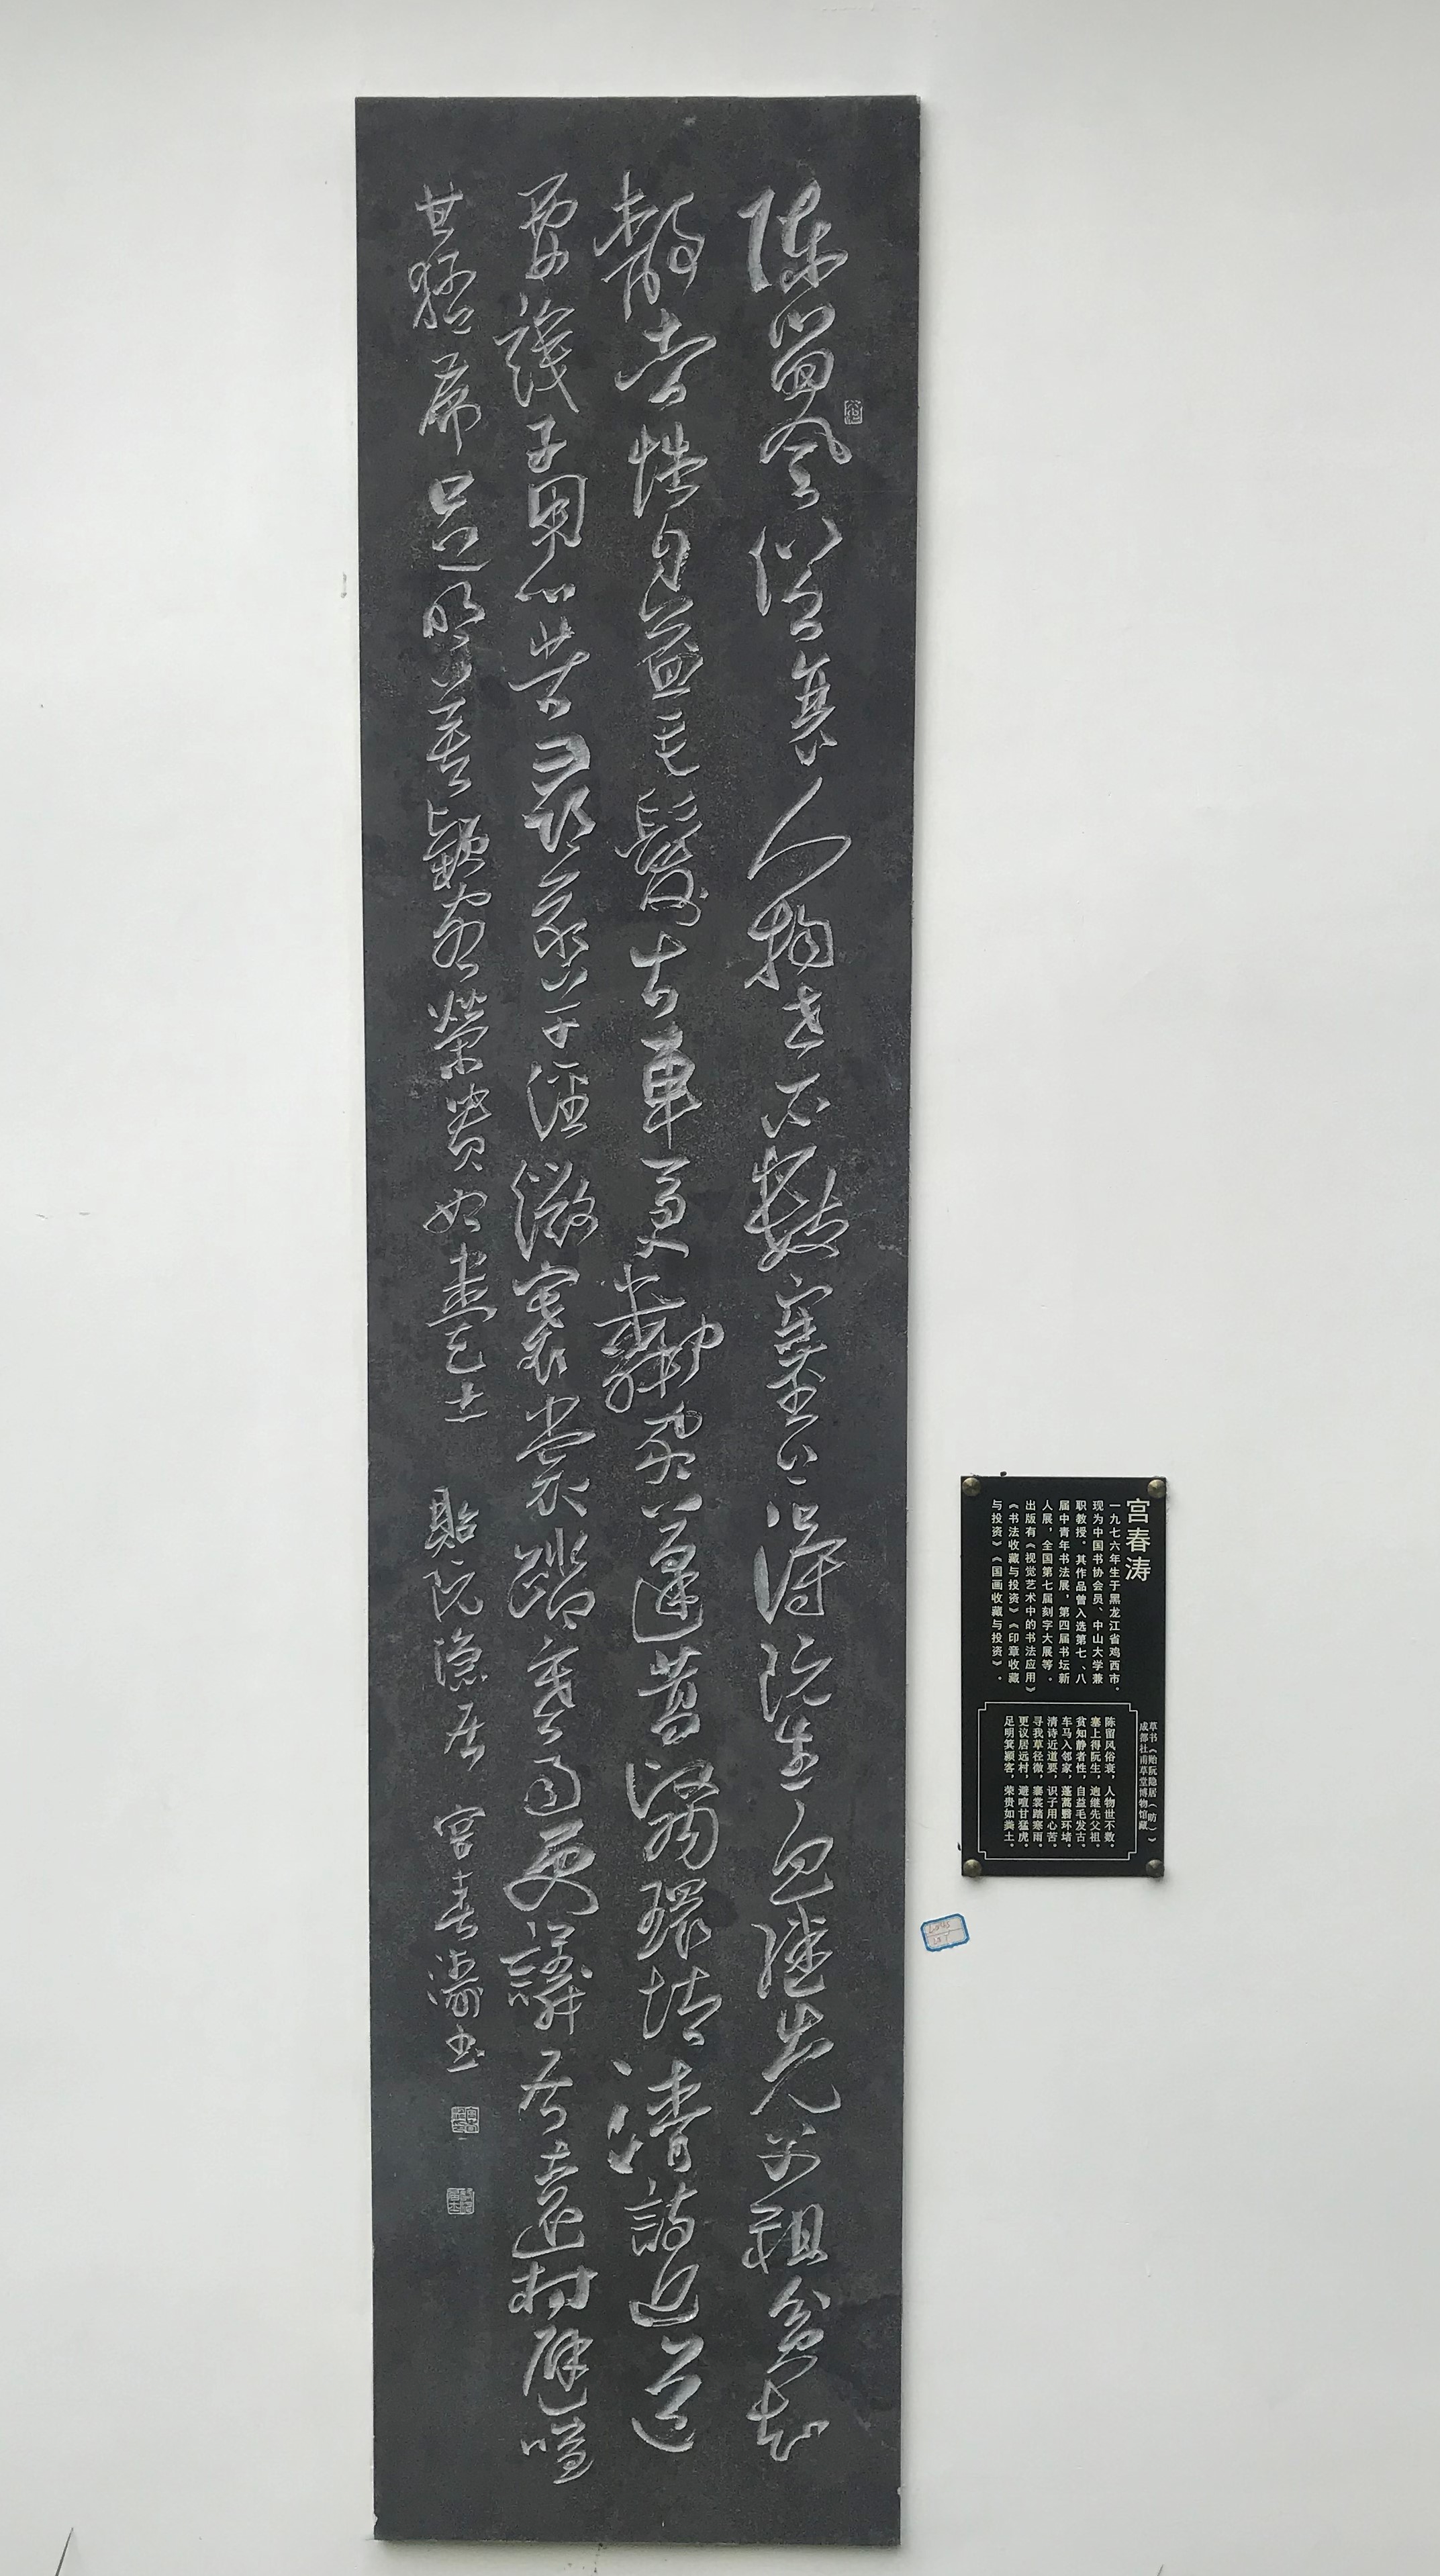 陳留風俗衰人物世不數塞上得阮生迥繼先父祖貧知
靜者性自益毛髮古車馬入鄰家蓬蒿翳環堵清詩近道
要識子用心苦尋我草徑微褰裳踏寒雨更議居遠村避喧
甘猛虎足明箕潁客榮貴如糞土 貽阮隱居 宮春濤书
宫春涛
一九七六年生于黑龙江省鸡西市。
现为中国书协会员、中山大学兼
职教授。其作品曾入选第七、八
届中青年书法展，第四届书坛新
人展，全国第七届刻字大展等。
出版有《视觉艺术中的书法应用》
《书法收藏与投资》《印章收藏
与投资》《国画收藏与投资》。
草书《贻阮隐居（昉）》
成都杜甫草堂博物馆藏
陈留风俗衰，人物世不数。
塞上得阮生，迥继先父祖。
贫知静者性，自益毛发古。
车马入邻家，蓬蒿翳环堵。
清诗近道要，识子用心苦。
寻我草径微，褰裳踏寒雨。
更议居远村，避喧甘猛虎。
足明箕颍客，荣贵如粪土。